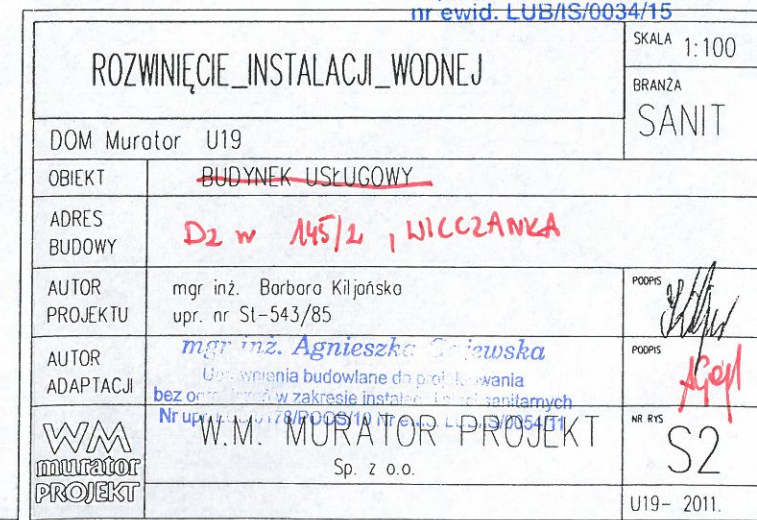 nr ewid. LUB/IS/0034/15
ROZWINIĘCIE_INSTALACJI_WODNEJ
SKALA 1:100
BRANŻA
SANIT
DOM Murator U19
OBIEKT BUDYNEK USŁUGOWY
ADRES
BUDOWY
Dz nr 145/2 , WILCZANKA
AUTOR
PROJEKTU
mgr inż. Barbara Kiljańska
upr. nr St-543/85
PODPIS
AUTOR
ADAPTACJI
mgr inż. Agnieszka
budowlane do
bez w zakresie sanitarnych
Nr
PODPIS
WM
murator
PROJEKT
W.M. MURATOR PROJEKT
Sp. z o.o.
NR RYS
S2
U19- 2011.